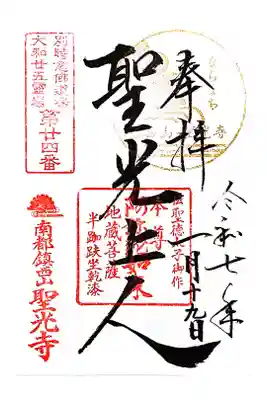 奉拝
聖光上人
令和七年
一月十九日
大和廿五霊場
第廿四番
伝聖徳太子御作
本尊
阿弥陀如来
地蔵菩薩
半跏趺坐乾漆
南都鎮西山
聖光寺
ならまち